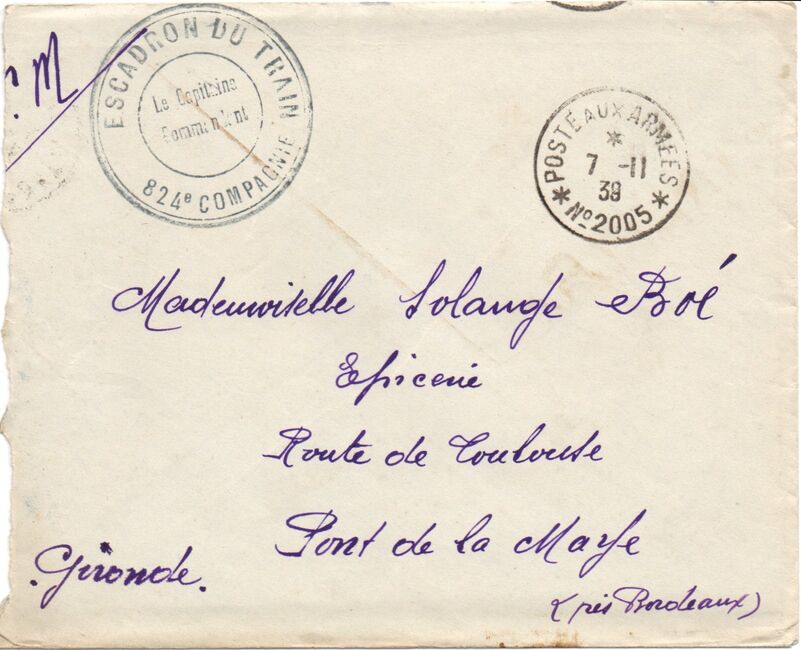 M
ESCADRON DU TRAIN
Le Capitaine
Commandant
824e COMPAGNIE
POSTE AUX ARMÉES
*
7 -11
39
* No 2005 *
Mademoiselle Solange Boé
Epicerie
Route de Toulouse
Pont de la Maye
Gironde.
(près Bordeaux)